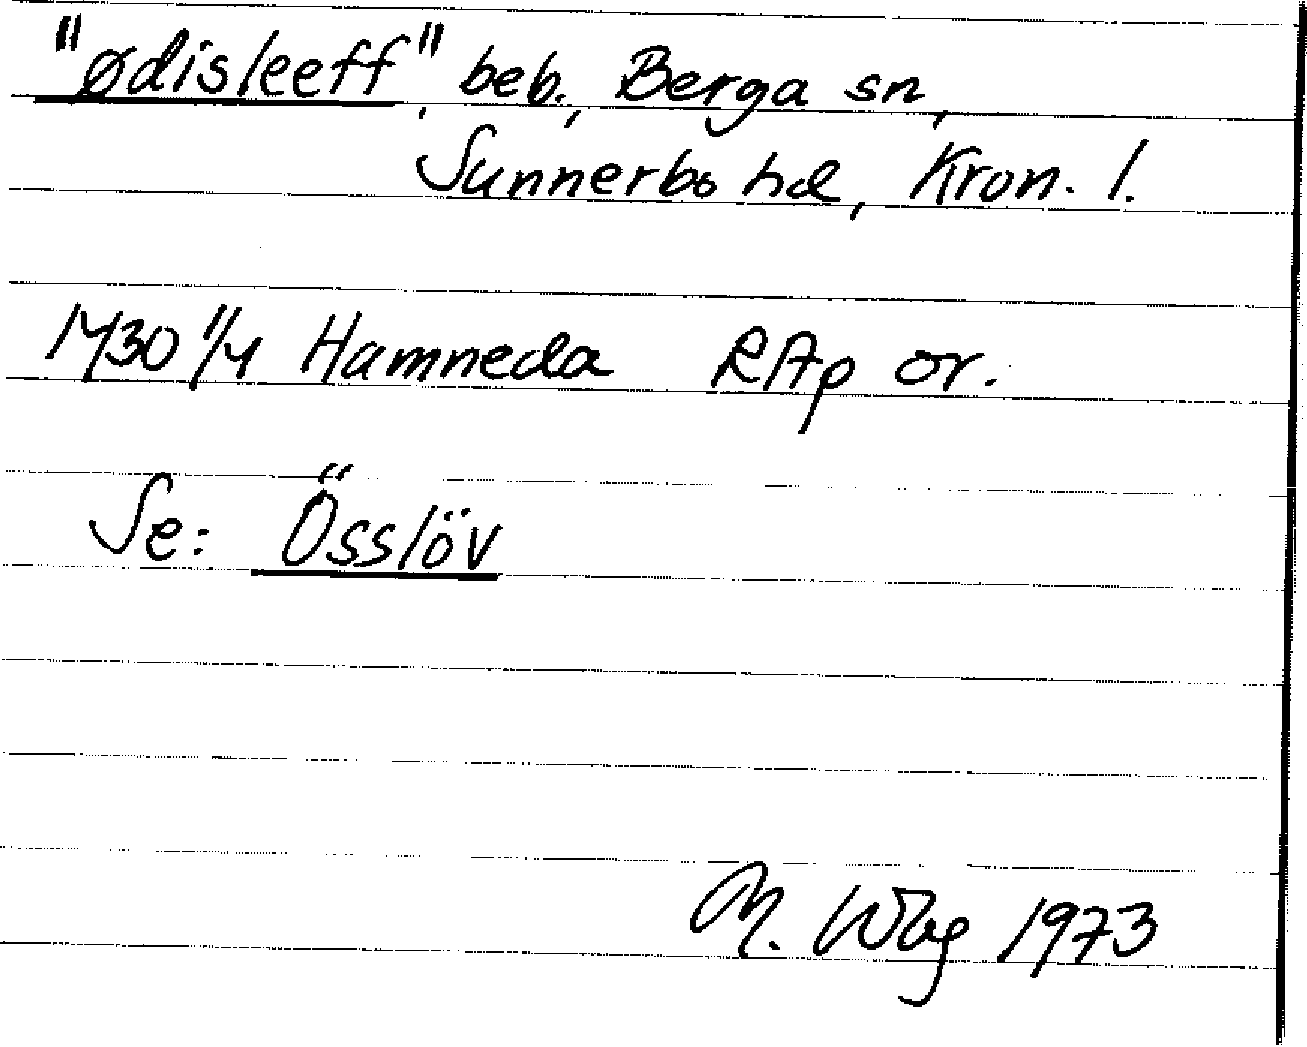 "ødisleeff", beb., Berga sn,
Sunnerbo hd, Kron. l.
1430 1/4 Hamneda RAp or.
Se: Össlöv
1973